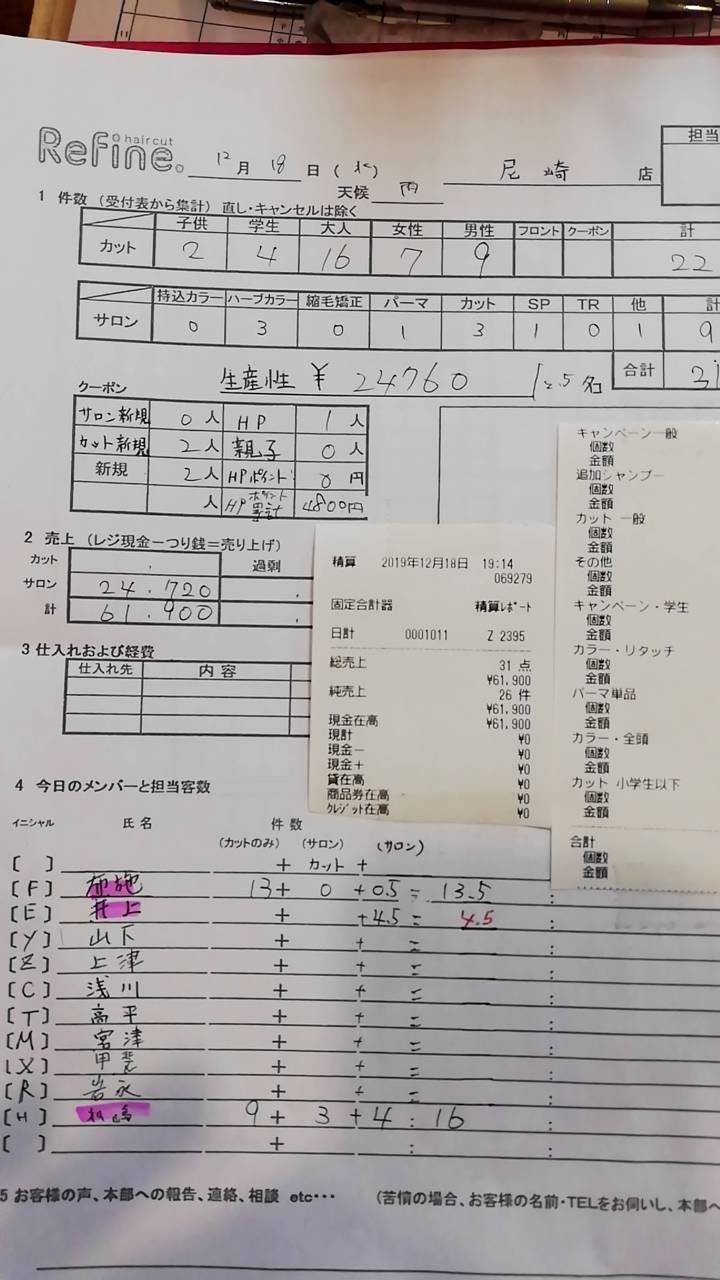 Refine. haircut
12月 18日(水) 尼崎 店
担当
天候 雨
1 件数 (受付表から集計) 直し・キャンセルは除く
子供 学生 大人 女性 男性 フロント クーポン 計
カット 2 4 16 7 9 22
持込カラー ハーブカラー 縮毛矯正 パーマ カット SP TR 他 計
サロン 0 3 0 1 3 1 0 1 9
合計 31
生産性 ¥ 24760 1=2.5名
クーポン
サロン新規 0人 HP 1人
カット新規 2人 親子 0人
新規 2人 HPポイント 0円
人 HPポイント累計 4800円
2 売上 (レジ現金ーつり銭=売り上げ)
カット 過剰
サロン 24.720
計 61.900
3 仕入れおよび経費
仕入れ先 内容
精算 2019年12月18日 19:14
069279
固定合計器 精算レポート
日計 0001011 Z 2395
総売上 31 点
¥61,900
純売上 26 件
¥61,900
現金在高 ¥61,900
現計 ¥0
現金− ¥0
現金+ ¥0
貸在高 ¥0
商品券在高 ¥0
クレジット在高 ¥0
キャンペーン一般
個数
金額
追加シャンプー
個数
金額
カット 一般
個数
金額
その他
個数
金額
キャンペーン・学生
個数
金額
カラー・リタッチ
個数
金額
パーマ単品
個数
金額
カラー・全頭
個数
金額
カット 小学生以下
個数
金額
合計
個数
金額
4 今日のメンバーと担当客数
イニシャル 氏名 件数
(カットのみ) (サロン) (サロン)
[ ] + カット +
[F] 布施 13 + 0 + 0.5 = 13.5 :
[E] 井上 + + 4.5 = 4.5 :
[Y] 山下 + + = :
[Z] 上津 + + = :
[C] 浅川 + + = :
[T] 高平 + + = :
[M] 宮津 + + = :
[X] 甲斐 + + = :
[R] 岩永 + + = :
[H] 9 + 3 + 4 : 16 :
[ ] + : :
5 お客様の声、本部への報告、連絡、相談 etc・・・ (苦情の場合、お客様の名前・TELをお伺いし、本部へ